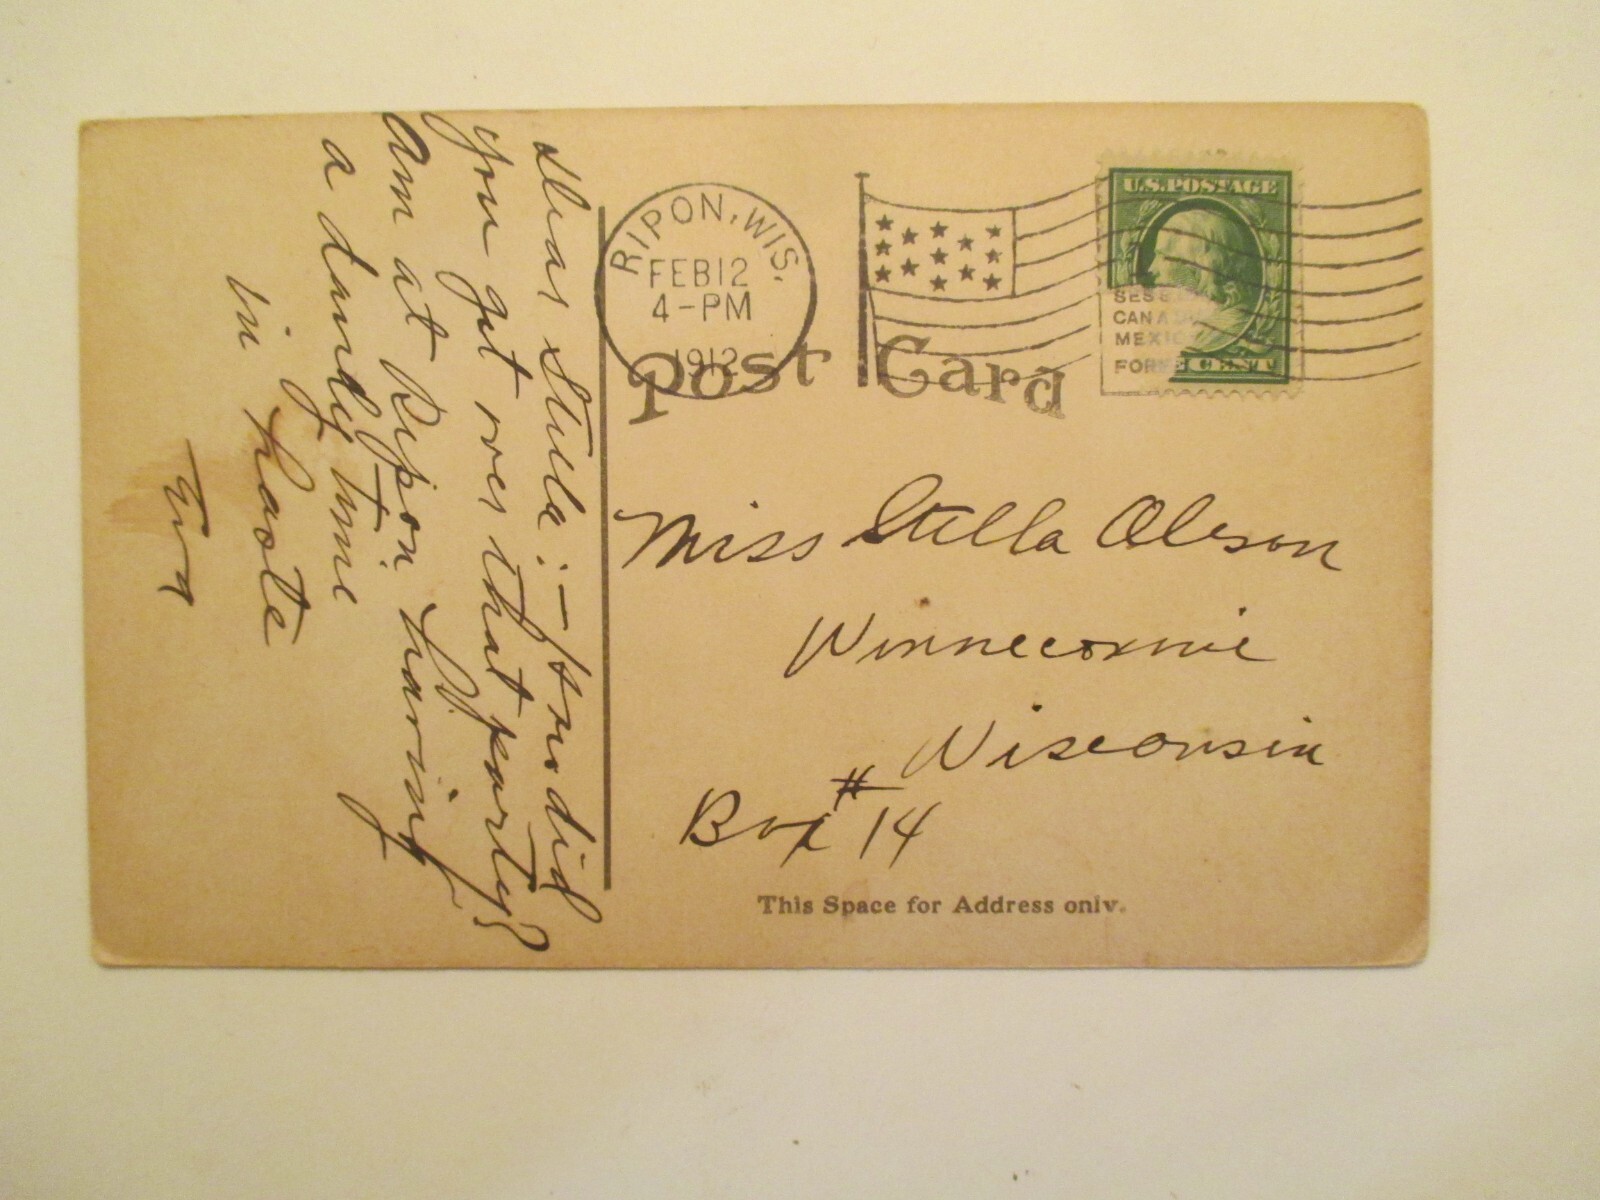 Dear Stella:- How did
you get over that party?
Am at Ripon having
a dandy time
in haste
RIPON, WIS.
FEB 12
4-PM
1912
U.S. POSTAGE
CAN
MEXIC
FOR
CENT
Post Card
Miss Stella Oleson
Winneconnie
Wisconsin
Box # 14
This Space for Address only.